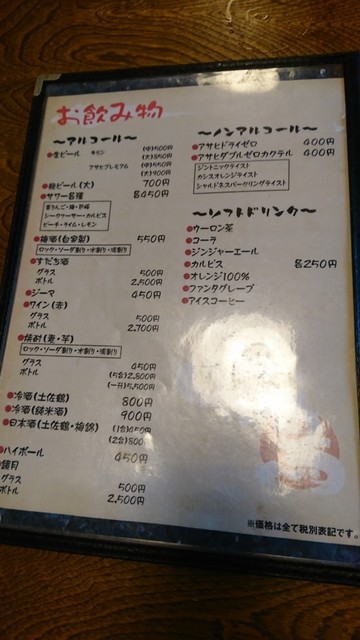 お飲み物
〜アルコール〜
●生ビール キリン (中)500円
(大)850円
アサヒプレミアム (中)550円
(大)900円
●瓶ビール(大) 700円
●サワー各種 各450円
青りんご・梅・巨峰
シークヮーサー・カルピス
ピーチ・ライム・レモン
●梅酒(自家製) 550円
ロック・ソーダ割り・水割り・湯割り
●すだち酒
グラス 500円
ボトル 2,500円
●ジーマ 450円
●ワイン(赤)
グラス 500円
ボトル 2,700円
●焼酎(麦・芋)
ロック・ソーダ割り・水割り・湯割り
グラス 450円
ボトル (5合)2,800円
(一升)5,500円
●冷酒(土佐鶴) 800円
●冷酒(純米酒) 900円
●日本酒(土佐鶴・梅錦) (1合)450円
(2合)800円
ハイボール 450円
鏡月
グラス 500円
ボトル 2,500円
〜ノンアルコール〜
●アサヒドライゼロ 400円
●アサヒダブルゼロカクテル 400円
ジントニックテイスト
カシスオレンジテイスト
シャルドネスパークリングテイスト
〜ソフトドリンク〜
●ウーロン茶
●コーラ
●ジンジャーエール
●カルピス 各250円
●オレンジ100%
●ファンタグレープ
●アイスコーヒー
※価格は全て税別表記です。